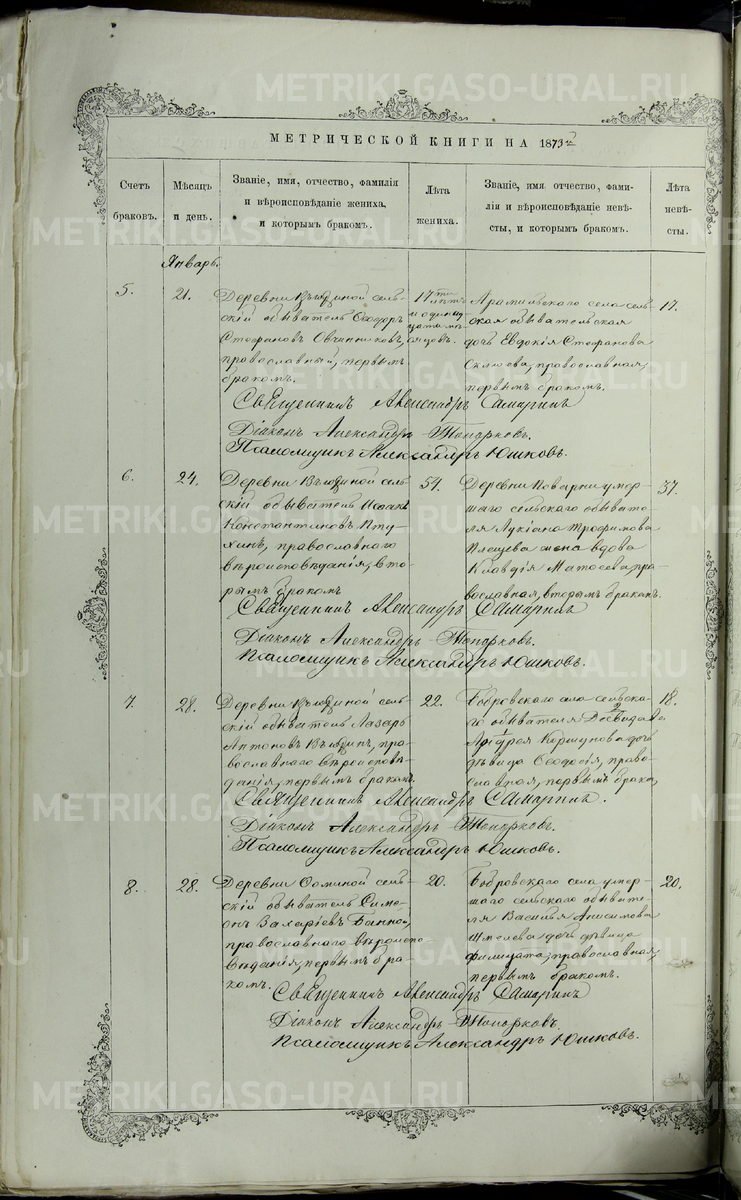 МЕТРИЧЕСКОЙ КНИГИ НА 1873й
Счетъ
браковъ.
Мѣсяцъ
и день.
Званіе, имя, отчество, фамилія
и вѣроисповѣданіе жениха,
и которымъ бракомъ.
Лѣта
жениха.
Званіе, имя, отчество, фами-
лія и вѣроисповѣданіе невѣ-
сты, и которымъ бракомъ.
Лѣта
невѣ-
сты.
Январь.
5.
21.
Деревни сель-
скій обыватель Ѳеодоръ
Стефановъ Овчинниковъ,
православный, первымъ
бракомъ.
17ти лѣтъ
и одинад
цати мѣ
сяцовъ.
Арамильскаго села сель-
ская обывательская
дочь Евдокія Стефанова
православная,
первымъ бракомъ.
17.
Священникъ Александръ Самаринъ
Діаконъ Александръ Топорковъ.
Псаломщикъ Александръ Юшковъ.
6.
24.
Деревни сель-
скій обыватель Исаакъ
Константиновъ Пту-
хинъ, православнаго
вѣроисповѣданія, вто-
рымъ бракомъ
54.
Деревни Поварни умер-
шаго сельскаго обывате-
ля Лукіана Трофимова
Плещева жена вдова
Клавдія Матѳеева, пра-
вославная, вторымъ бракомъ.
37.
Священникъ Александръ Самаринъ
Діаконъ Александръ Топорковъ.
Псаломщикъ Александръ Юшковъ.
7.
28.
Деревни сель-
скій обыватель Лазарь
Антоновъ пра-
вославнаго вѣроисповѣ-
данія, первымъ бракомъ.
22.
Бобровскаго села сельска-
го обывателя Давида
Андрея Коршунова дочь
дѣвица Ѳеодосія, право-
славная, первымъ брако,
18.
Священникъ Александръ Самаринъ.
Діаконъ Александръ Топорковъ.
Псаломщикъ Александръ Юшковъ.
8.
28.
Деревни Ѳоминой сель-
скій обыватель Симе-
онъ Захаріевъ
православнаго вѣроиспо
вѣданія, первымъ бра-
комъ.
20.
Бобровскаго села умер-
шаго сельскаго обывате-
ля Василья Анисимова
Шмелева дочь дѣвица
Филицата, православная,
первымъ бракомъ.
20.
Священникъ Александръ Самаринъ
Діаконъ Александръ Топорковъ.
Псаломщикъ Александръ Юшковъ.
METRIKI.GASO-URAL.RU